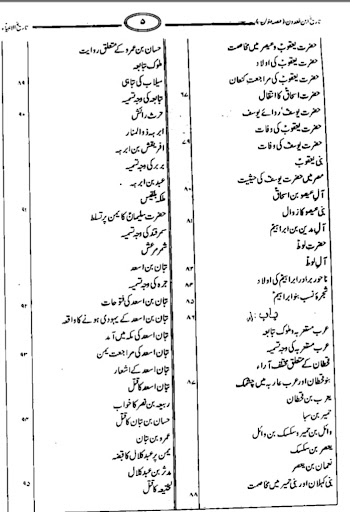 تاریخ ابن خلدون (حصہ اول)
۵
تاریخ الانبیاء
حضرت یعقوب و عیصر میں مخاصمت
حضرت یعقوب کی اولاد
حضرت یعقوب کی مراجعت کنعان
حضرت اسحاق کا انتقال
۷۷
حضرت یوسف
حضرت یعقوب کی وفات
حضرت یوسف کی وفات
۷۹
بنی یعقوب
مصر میں حضرت یوسف کی حیثیت
آل عیصو بن اسحاق
۸۰
بنی عیصو کا زوال
آل مدین بن ابراہیم
حضرت لوط
آل لوط
ناحور برادر ابراہیم کی اولاد
۸۳
شجرۂ نسب بنو ابراہیم
۸۵
باب:
۸۶
عرب مستعربہ و ملوک تبابعہ
عرب مستعربہ کی وجہ تسمیہ
قحطان کے متعلق مختلف آراء
بنو قحطان اور عرب عاربہ میں چشمک
۸۷
یعرب بن قحطان
حمیر بن سبا
وائل بن حمیر و سکسک بن وائل
یعفر بن سکسک
نعمان بن یعفر
بنی کہلان اور بنی حمیر میں مخاصمت
۸۸
حسان بن عمرو کے متعلق روایت
ملوک تبابعہ
سیلاب کی تباہی
۸۹
تبابعہ کی وجہ تسمیہ
حرث رائش
۹۰
ابرہہ ذوالمنار
افریقش بن ابرہہ
بربر کی وجہ تسمیہ
عبد بن ابرہہ
ملکہ بلقیس
۹۱
حضرت سلیمان کا یمن پر تسلط
سمرقند کی وجہ تسمیہ
شمر مرعش
تبان بن اسعد
حیرہ کی وجہ تسمیہ
تبان بن اسعد کی فتوحات
۹۲
تبان بن اسعد کے یہودی ہونے کا واقعہ
تبان اسعد کی مکہ میں آمد
تبان اسعد کی مراجعت یمن
۹۳
تبان اسعد کے اشعار
تبان اسعد کا قتل
ربیعہ بن نصر کا خواب
حسان بن تبان کا قتل
۹۴
عمرو بن تبان
یمن پر عبد کلال کا قبضہ
مدثر بن عبد کلال
لخنیعہ کا قتل
۹۵